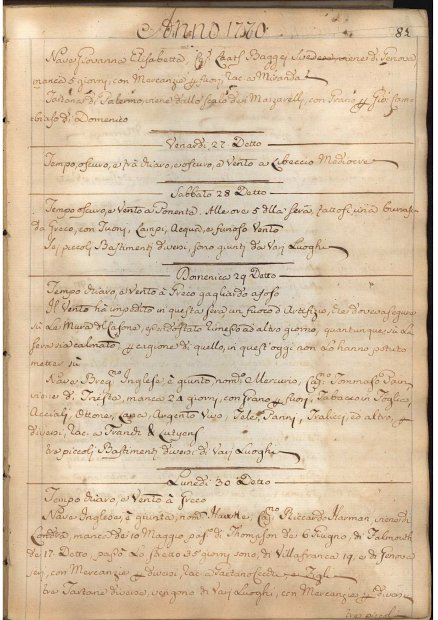 Anno 1770
Nave Giovanna Elisabetta, Cap. Baggej Svedese, viene di Genova
manca 5 giorni, con Mercanzie p fuori, Rac. a Miranda
Tartana di Palermo, viene dallo scalo dei Mazzarelli, con Grano p Gio:
di Domenico
Venardi 27 Detto
Tempo, oscuro, e trà chiaro, e oscuro, e Vento a Libeccio Mediocre
Sabbato 28 Detto
Tempo oscuro, e Vento a Ponente. Alle ore 5 della sera, fattosi una burrasca
da Greco, con Tuoni, Lampi, Acqua, e furioso Vento
Sei piccoli Bastimenti diversi, sono giunti da Varj Luoghi
Domenica 29 Detto
Tempo chiaro, e Vento à Greco gagliardo
Il Vento hà impedito in questa sera un fuoco d'Artifizio, che doveva seguire
sù le Mura del Casone, essendo stato rimesso ad altro giorno, quantunque sù la
sera sia calmato, p cagione di quello, in quest'oggi non lo hanno potuto
metter sù
Nave Inglese, è giunto, nom. Mercurio, Cap. Tommaso
viene di Trieste, manca 24 giorni, con Grano p fuori, Tabacco in Foglia,
Acciaj, Ottone, Argento Vivo, Tele, Panni, Tralicci, ed altro, p
diversi, Rac. a
piccoli Bastimenti diversi di Varj Luoghi
Lunedì 30 Detto
Tempo chiaro, e Vento à Greco
Nave Inglese, è giunta, nom. Cap. Riccardo Harman, viene di
Londra, manca de 10 Maggio, da 6 Giugno, di Falmouth
de 17 Detto, 3 giorni sono, di Villafranca 19, e di Genova
jeri, con Mercanzie p diversi, Rac. a Gaetano
tre Tartane diverse, vengono di Varj Luoghi, con Mercanzie p diversi